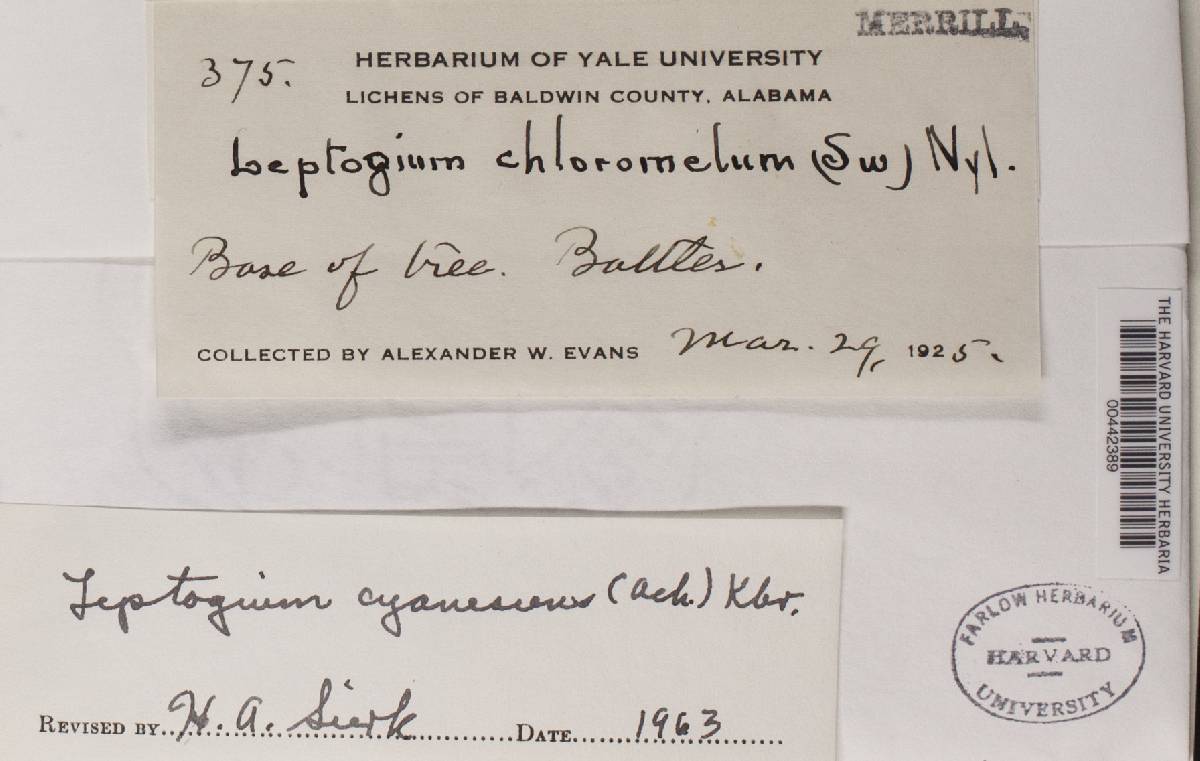 MERRILL
375.
HERBARIUM OF YALE UNIVERSITY
LICHENS OF BALDWIN COUNTY, ALABAMA
Leptogium chloromelum (Sw) Nyl.
Base of tree. Battles.
COLLECTED BY ALEXANDER W. EVANS Mar. 29, 1925.
THE HARVARD UNIVERSITY HERBARIA
00442389
Leptogium cyanescens (Ach.) Kbr.
REVISED BY H. A. Sierk DATE 1963
FARLOW HERBARIUM
HARVARD
UNIVERSITY